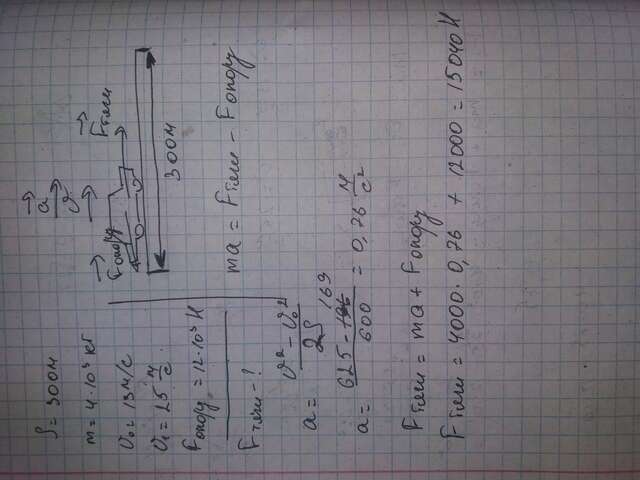 S = 300м
m = 4·10³ кг
υ₀ = 13 м/с
υ₁ = 25 м/с
Fопору = 12·10³ Н
Fтяги - ?
a υ
Fопору Fтяги
300м
ma = Fтяги - Fопору
a = (υ² - υ₀²) / 2S
a = (625 - 169) / 600 = 0,76 м/с²
Fтяги = ma + Fопору
Fтяги = 4000 · 0,76 + 12000 = 15040 Н